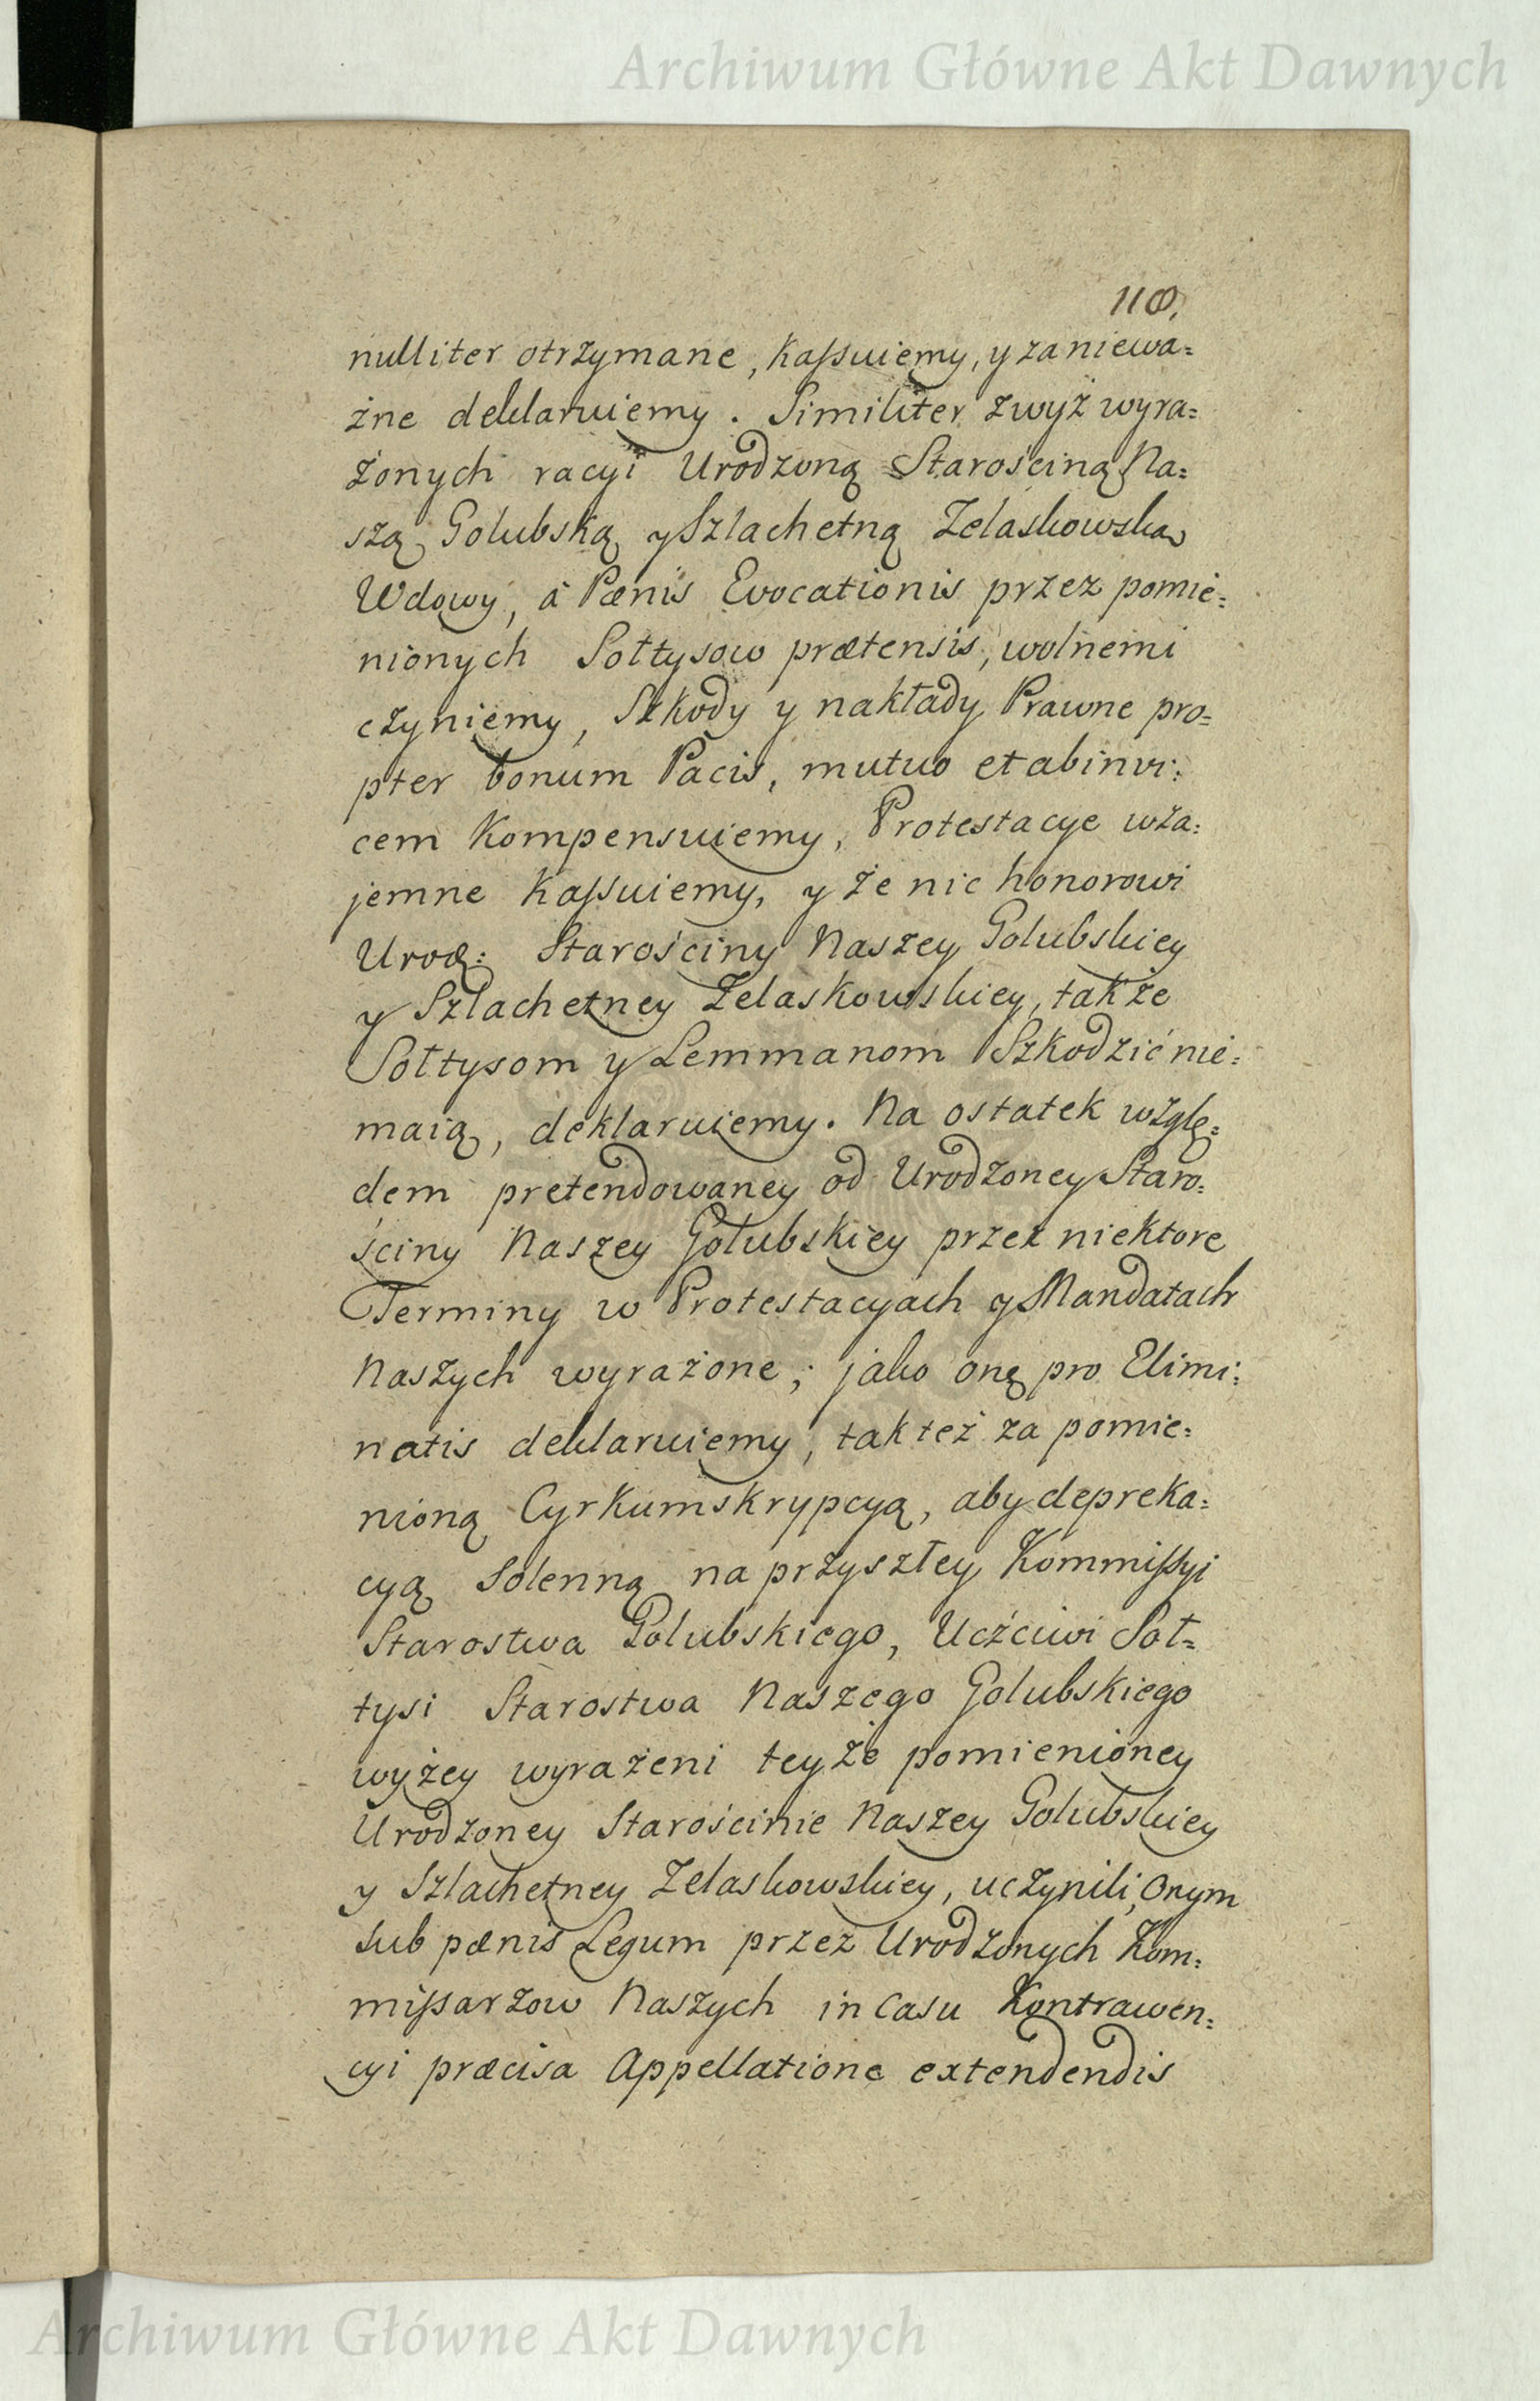 Archiwum Główne Akt Dawnych
118.
nulliter otrzymane, kassuiemy, y zaniewa=
żne deklaruiemy. Similiter zwyż wyra=
żonych racyi Urodzoną Starościną Na=
szą Golubską y Szlachetną Zelaskowską
Wdowy, à Pænis Evocationis przez pomie=
nionych Sołtysow prætensis, wolnemi
czyniemy, Szkody y nakłady Prawne pro=
pter bonum Pacis, mutuo et abinvi=
cem Kompensuiemy, Protestacye wza=
jemne kassuiemy, y że nic honorowi
Urod: Starościny Naszey Golubskiey
y Szlachetney Zelaskowskiey, także
Sołtysom y Lemmanom Szkodzić nie=
maią, deklaruiemy. Na ostatek wzglę=
dem pretendowaney od Urodzoney Staro=
ściny Naszey Golubskiey przez niektore
Terminy w Protestacyach y Mandatach
Naszych wyrażone; jako onę pro Elimi=
natis deklaruiemy, tak też za pomie=
nioną Cyrkumskrypcyą, aby depreka=
cyą Solenną na przyszłey Kommissyi
Starostwa Golubskiego, Uczciwi Soł=
tysi Starostwa Naszego Golubskiego
wyżey wyrażeni teyże pomienioney
Urodzoney Starościnie Naszey Golubskiey
y Szlachetney Zelaskowskiey, uczynili, Onym
sub pænis Legum przez Urodzonych Kom=
missarzow Naszych in Casu Kontrawen=
cyi præcisa Appellatione extendendis
Archiwum Główne Akt Dawnych